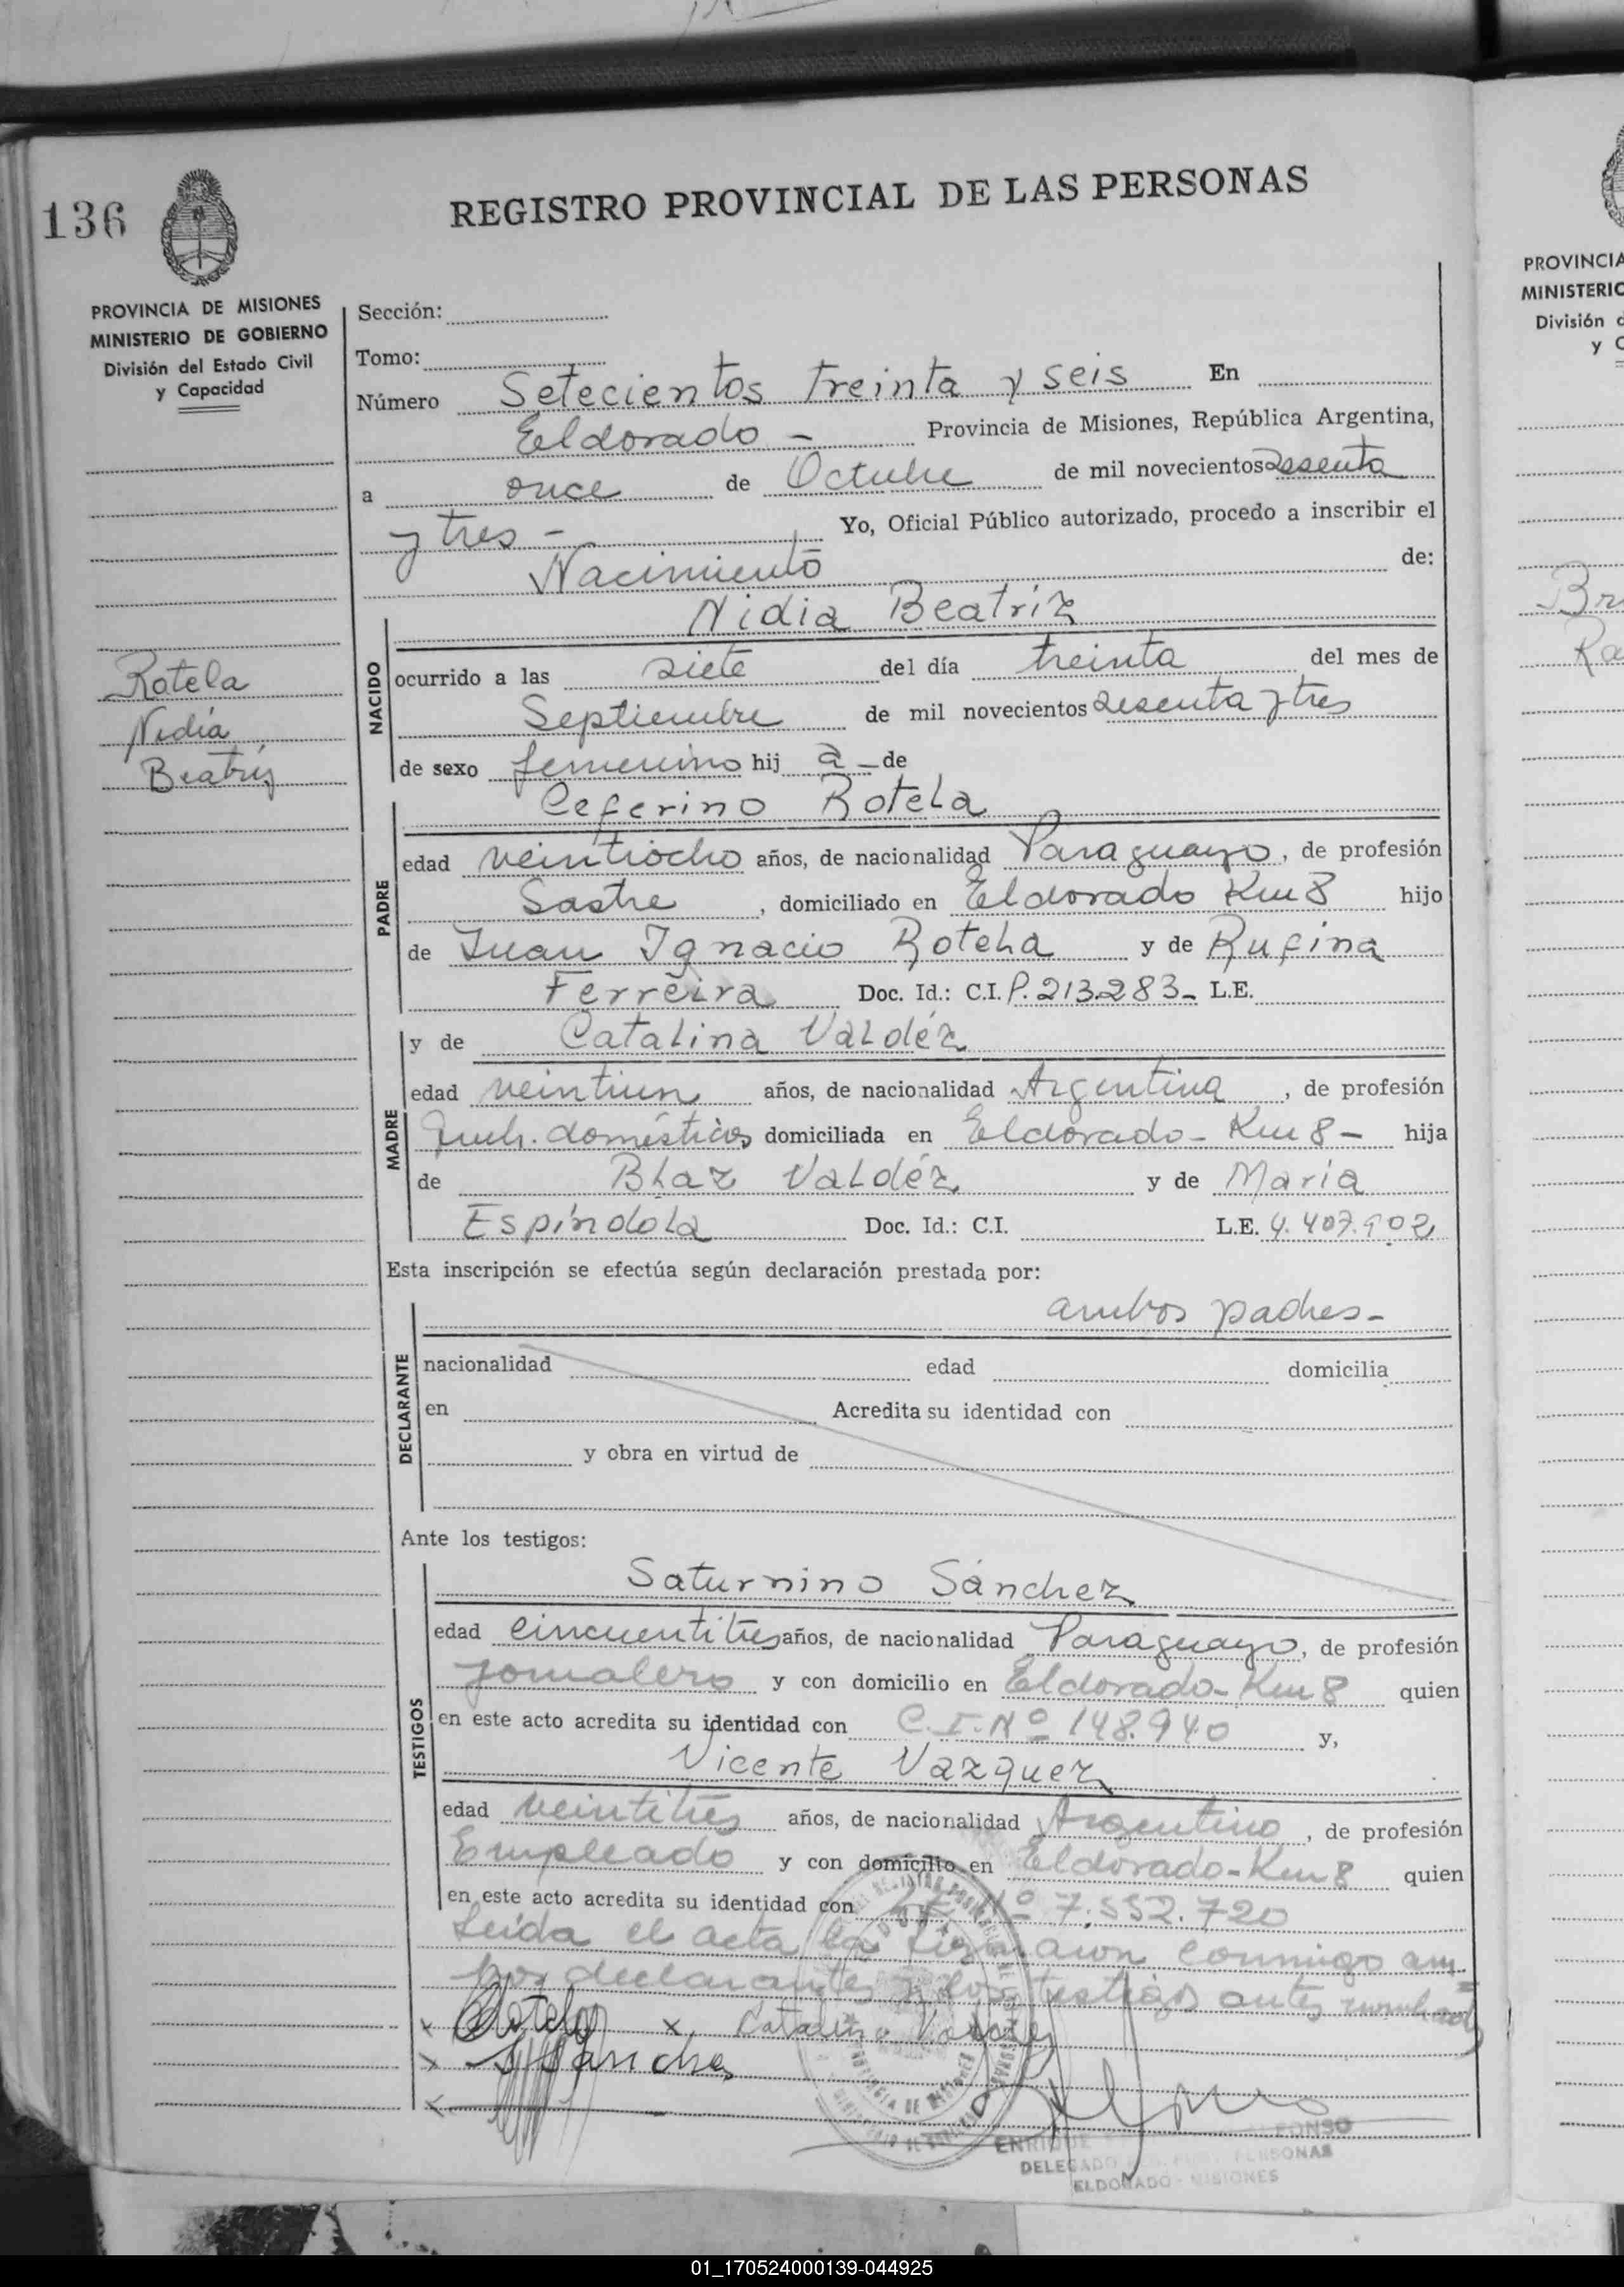 136
REGISTRO PROVINCIAL DE LAS PERSONAS
PROVINCIA DE MISIONES
MINISTERIO DE GOBIERNO
División del Estado Civil
y Capacidad
Rotela
Nidia
Beatriz
Sección:
Tomo:
Número Setecientos treinta y seis En
Eldorado - Provincia de Misiones, República Argentina,
a once de Octubre de mil novecientos sesenta
y tres - Yo, Oficial Público autorizado, procedo a inscribir el
Nacimiento de:
Nidia Beatriz
NACIDO
ocurrido a las siete del día treinta del mes de
Septiembre de mil novecientos sesenta y tres
de sexo femenino hij a - de
Ceferino Rotela
PADRE
edad veintiocho años, de nacionalidad Paraguayo, de profesión
Sastre, domiciliado en Eldorado Km 8 hijo
de Juan Ignacio Rotela y de Rufina
Ferreira Doc. Id.: C.I. P. 213.283- L.E.
MADRE
y de Catalina Valdéz
edad veintiun años, de nacionalidad Argentina, de profesión
Queh. domésticos domiciliada en Eldorado - Km 8 - hija
de Blaz Valdéz y de María
Espíndola Doc. Id.: C.I. L.E. 4.407.902
Esta inscripción se efectúa según declaración prestada por:
ambos padres -
DECLARANTE
nacionalidad edad domicilia
en Acredita su identidad con
y obra en virtud de
Ante los testigos:
Saturnino Sánchez
TESTIGOS
edad cincuentitres años, de nacionalidad Paraguayo, de profesión
jornalero y con domicilio en Eldorado - Km 8 quien
en este acto acredita su identidad con C.I. Nº 148.940 y,
Vicente Vazquez
edad veintitrés años, de nacionalidad Argentino, de profesión
Empleado y con domicilio en Eldorado - Km 8 quien
en este acto acredita su identidad con L.E. Nº 7.552.720
Leida el acta la firmaron conmigo am-
bos declarantes y los testigos antes nombrados
x Rotela x Catalina Valdez
x S Sanchez
x
ENRIQUE ALFONSO
DELEGADO PERSONAS
ELDORADO - MISIONES
PROVINCIA
MINISTERIO
División d
y C
Br
Ra
01_170524000139-044925